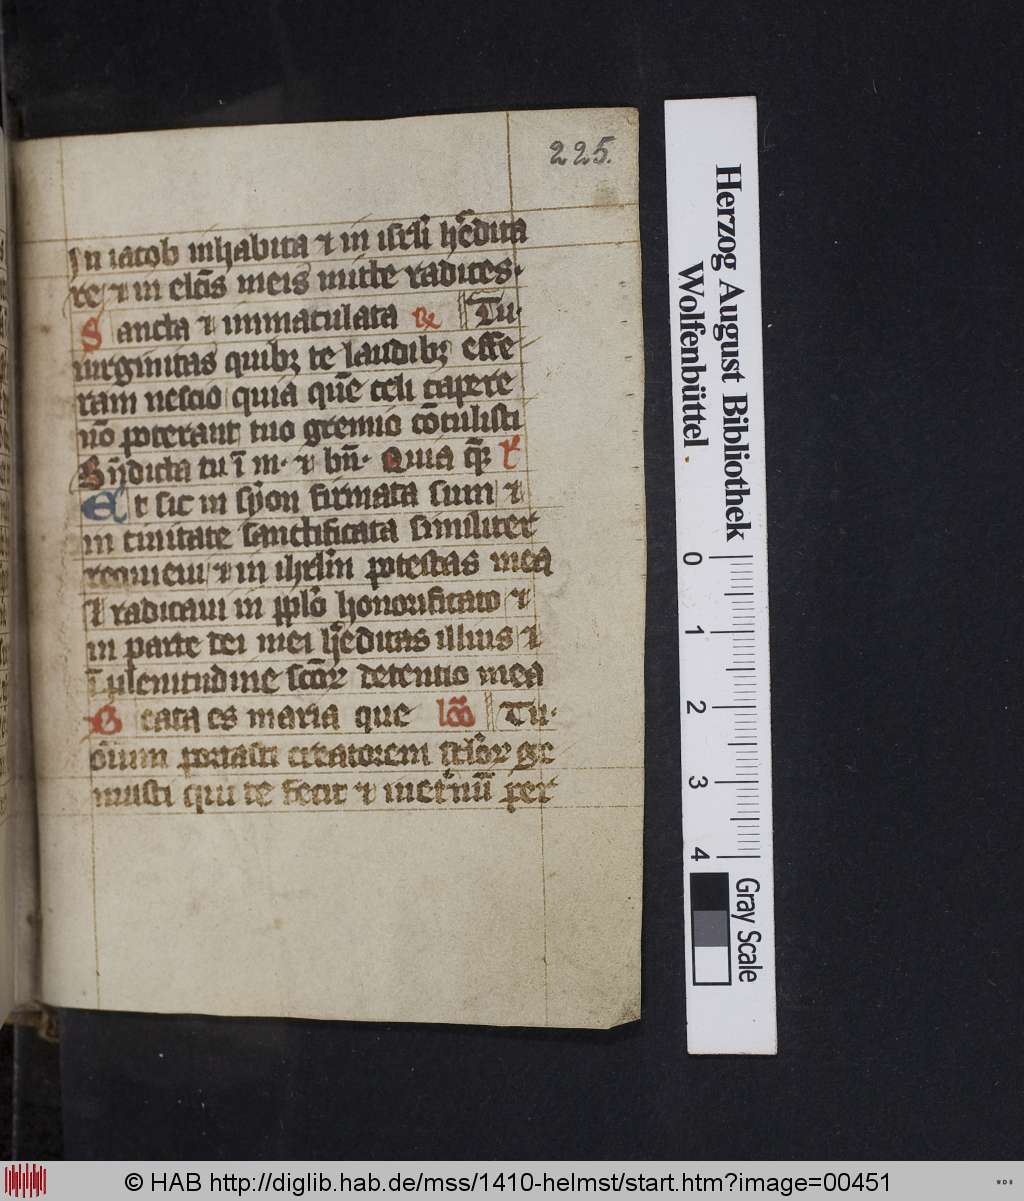 225.
In iacob inhabita ⁊ in isrl̄ hēdita
re ⁊ in elc̄is meis mitte radices·
Sancta ⁊ inmaculata R̄ Tu·
uirginitas quibꝫ te laudibꝫ effe
ram nescio quia quē celi capere
nō poterant tuo gremio cōtulisti
Bn̄dicta tu ī m· ⁊ bn̄· Quia q̄ꝫ
Et sic in syon firmata sum ⁊
in ciuitate sanctificata similiter
requieui ⁊ in ihrl̄m potestas mea
Et radicaui in ppl̄o honorificato ⁊
in parte dei mei h̄editas illius ⁊
ī plenitudine sc̄oꝝ detentio mea
Beata es maria que Tu·
dn̄ium portasti creatorem
nuisti qui te fecit ⁊ inet̄nū per
Herzog August Bibliothek
Wolfenbüttel
0 1 2 3 4
Gray Scale
© HAB http://diglib.hab.de/mss/1410-helmst/start.htm?image=00451